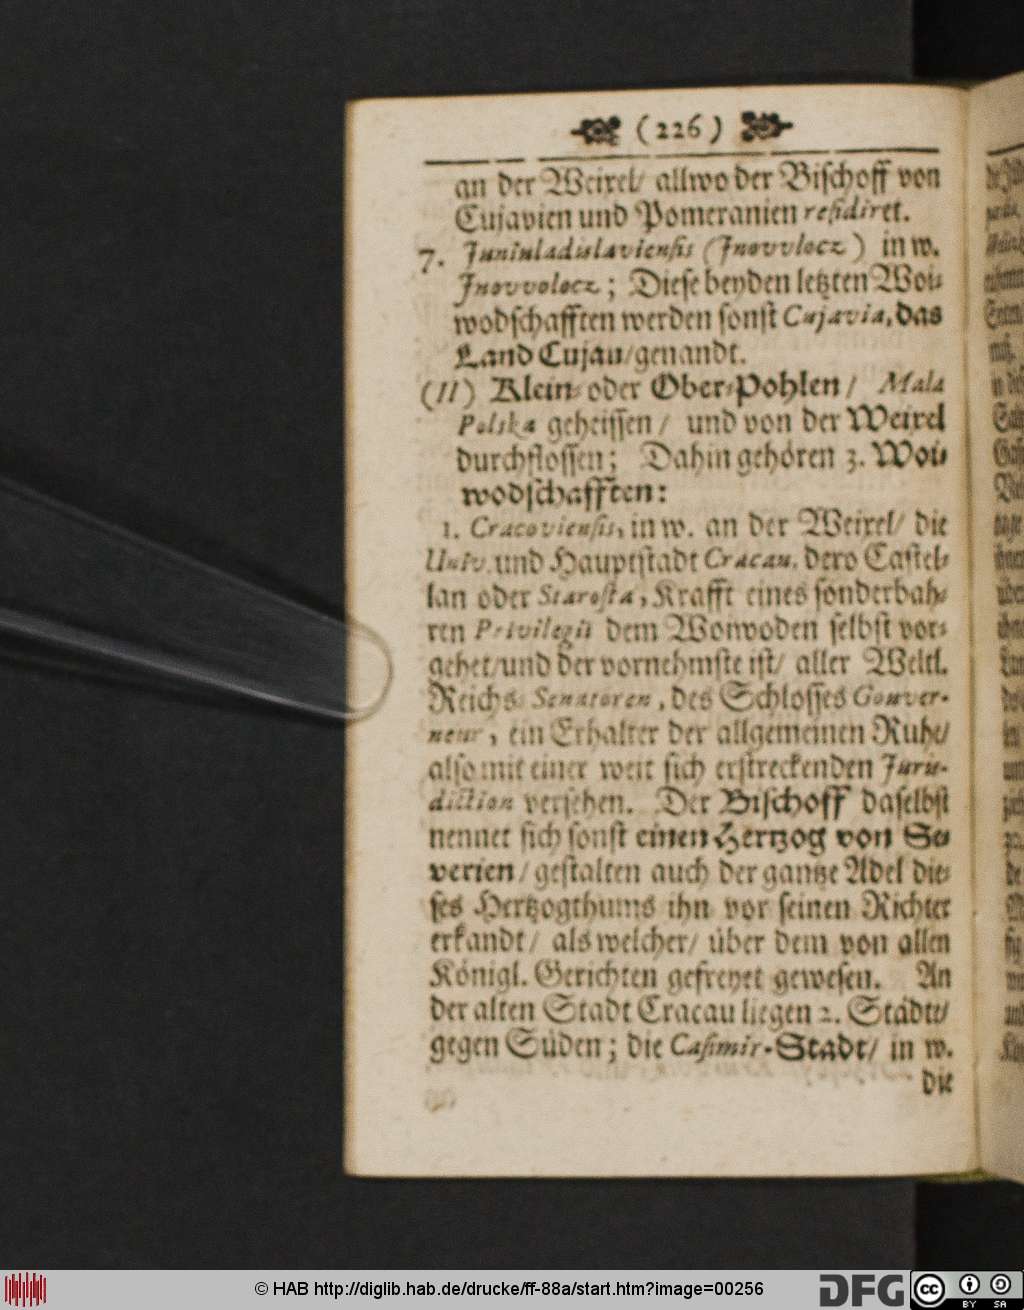 (226)
an der Weixel/ allwo der Bischoff von
Cujavien und Pomeranien residiret.
7. Juniuladislaviensis (Jnovvlocz) in w.
Jnovvolocz; Diese beyden letzten Woi-
wodschafften werden sonst Cujavia, das
Land Cujau/genandt.
(II) Klein- oder Ober-Pohlen/ Mala
Polska geheissen/ und von der Weixel
durchflossen; Dahin gehören 3. Woi-
wodschafften:
1. Cracoviensis, in w. an der Weixel/ die
Univ. und Hauptstadt Cracau, dero Castel-
lan oder Starosta, Krafft eines sonderbah-
ren Privilegii dem Woiwoden selbst vor-
gehet/und der vornehmste ist/ aller Weltl.
Reichs-Senatoren, des Schlosses Gouver-
neur, ein Erhalter der allgemeinen Ruhe/
also mit einer weit sich erstreckenden Juris-
diction versehen. Der Bischoff daselbst
nennet sich sonst einen Hertzog von Se-
verien/gestalten auch der gantze Adel die-
ses Hertzogthums ihn vor seinen Richter
erkandt/ als welcher/ über dem von allen
Königl. Gerichten gefreyet gewesen. An
der alten Stadt Cracau liegen 2. Städte/
gegen Süden; die Casimir-Stadt/ in w.
die
© HAB http://diglib.hab.de/drucke/ff-88a/start.htm?image=00256
DFG
CC BY SA